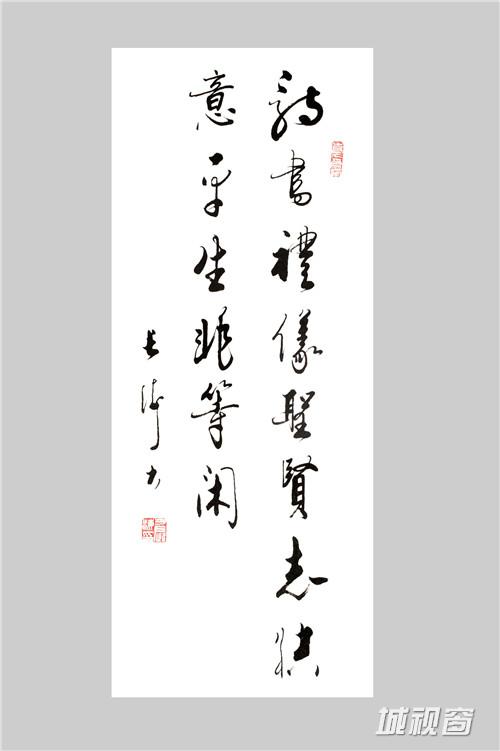 詩書禮儀聖賢志快
意平生非等闲
城视窗